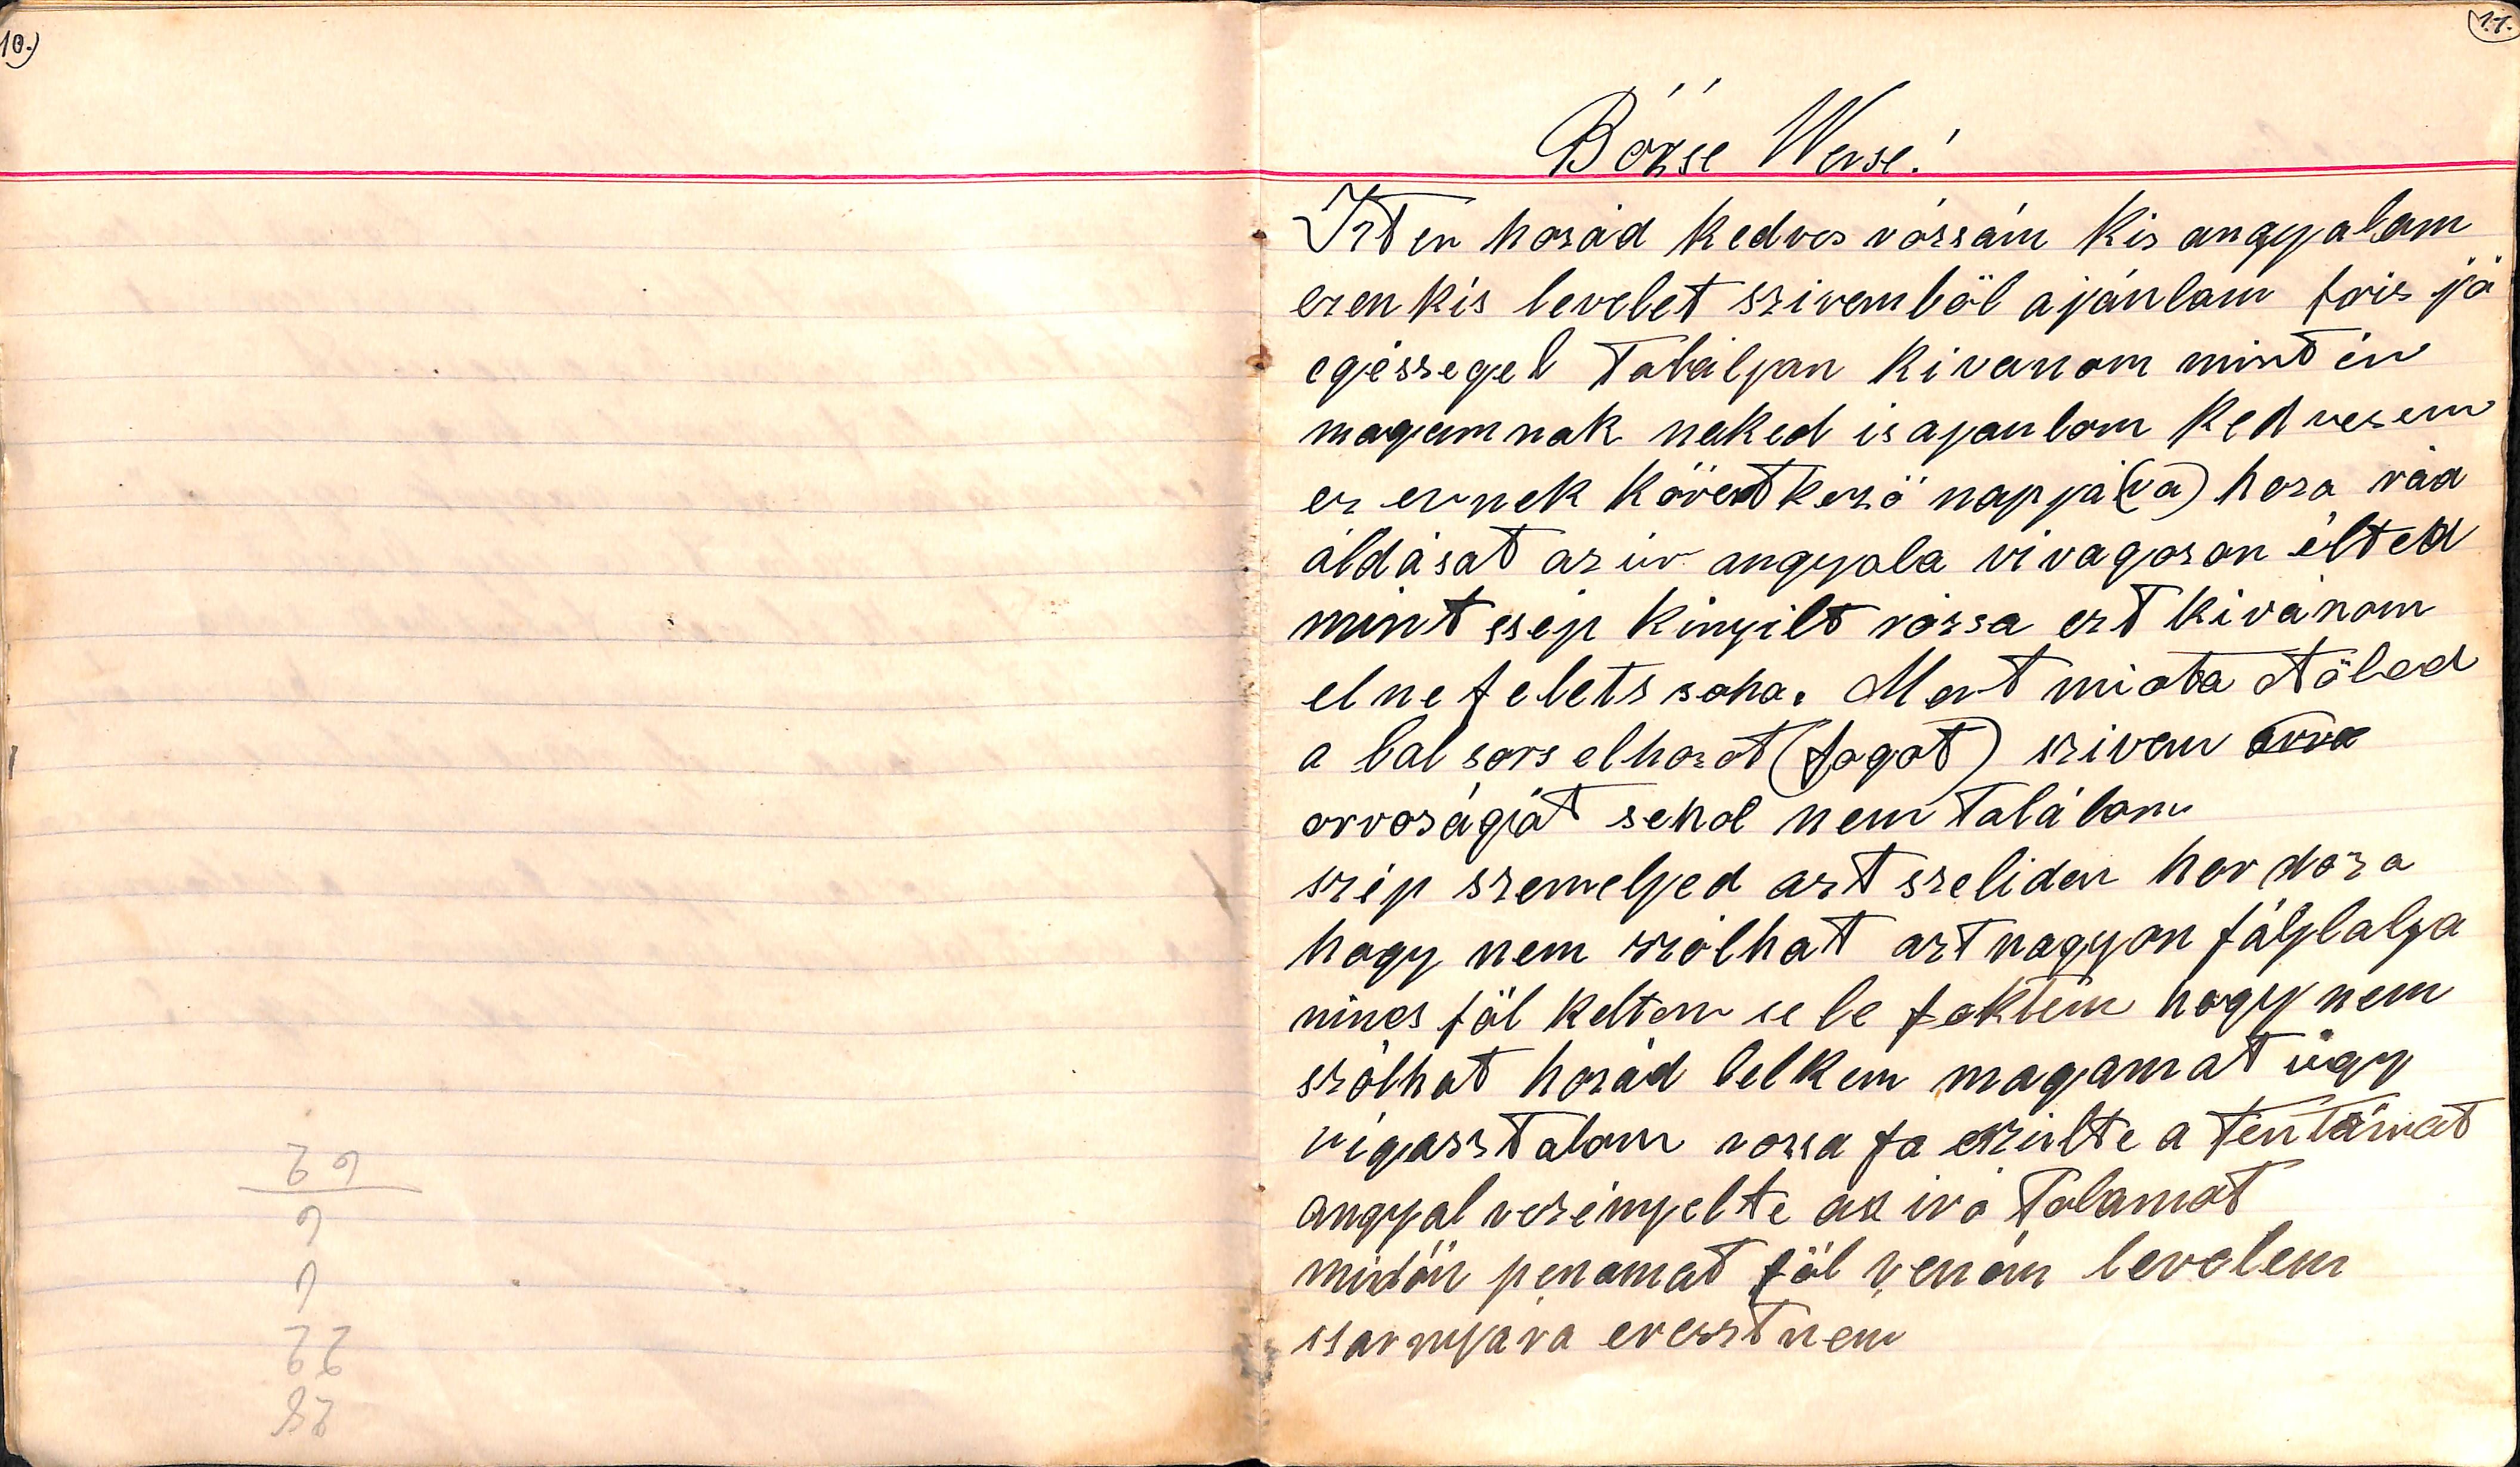 10.)
62
6
6
22
28
11.
Bőrse Werse!
Irt en horád kedves rórsám kis angyalam
eren kis levelet szivemböl ajánlam foris jó
egésssegel Tabáljon kivanom mint én
magamnak neked is ajanlom kedvesem
er ernek kövertkerö napjá(va) hora rád
áldásat ar úr angyala viragoson élted
mint ssép kinyilt rórsa ert kivánom
el ne felets soha. Mert miota töled
a bal sors elhorot (fogot) srivem orvo
orvoságiát sehol nem találom
srép sremelyed art sreliden hordora
hogy nem srólhat art nagyon fáljlalja
nincs föl keltem se le fektem hogy nem
srólhat horád lelkem magamat úgy
vigasstalom rorsa fa srülte a tentámat
angyal verényelte ar iró Tolamat
midön penámat föl venóm levelem
ssarnyára eresstnem